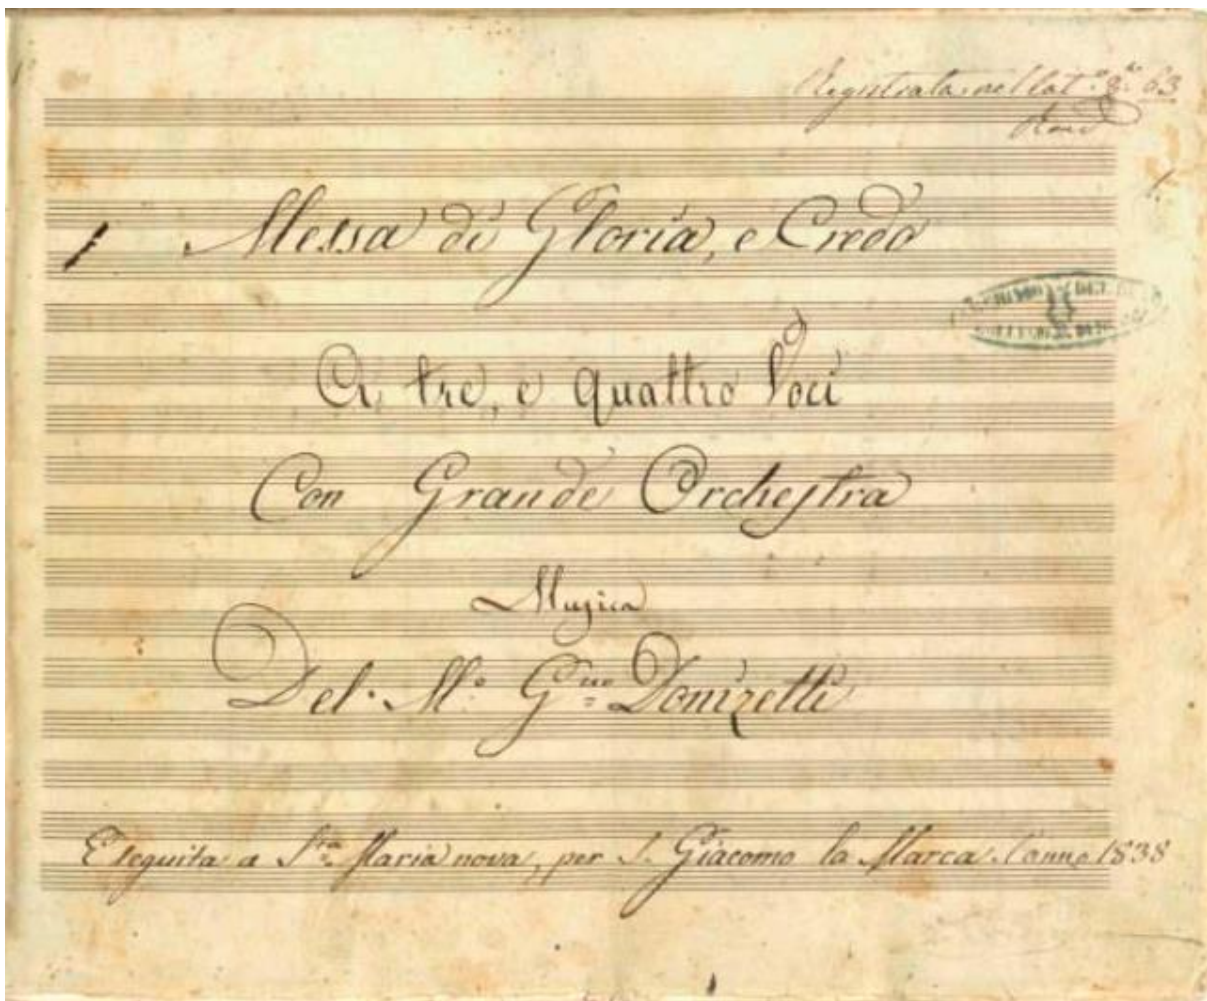 Registrata nel lat.º 8.º 63
Messa di Gloria, e Credo
A tre, e quattro Voci
Con Grande Orchestra
Muzica
Del M.º G.no Donizetti
Eseguita a S.ta Maria nova, per S. Giacomo la Marca. l'anno 1838